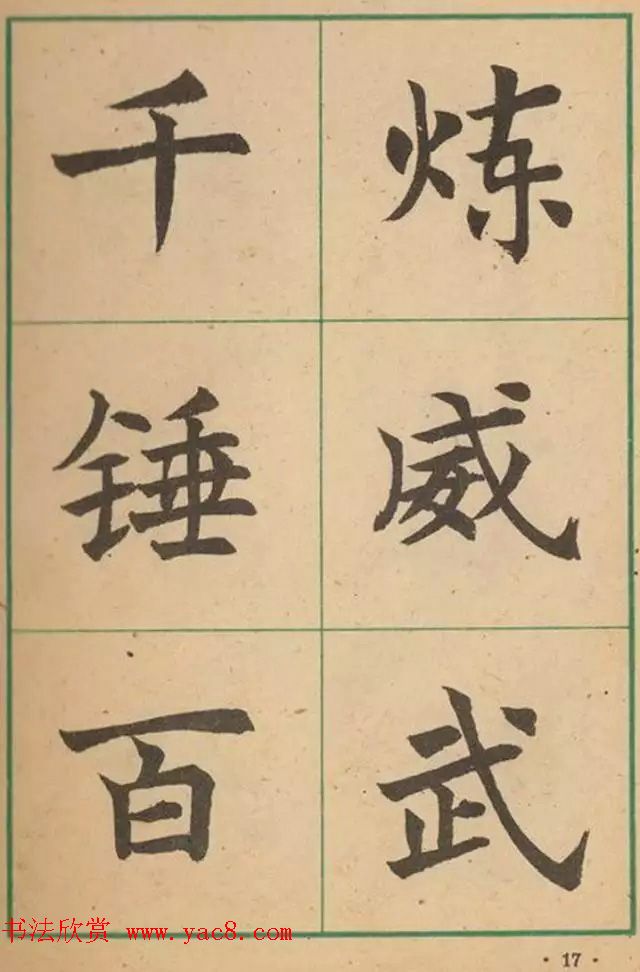 千锤百
炼威武
书法欣赏 www.yac8.com
·17·